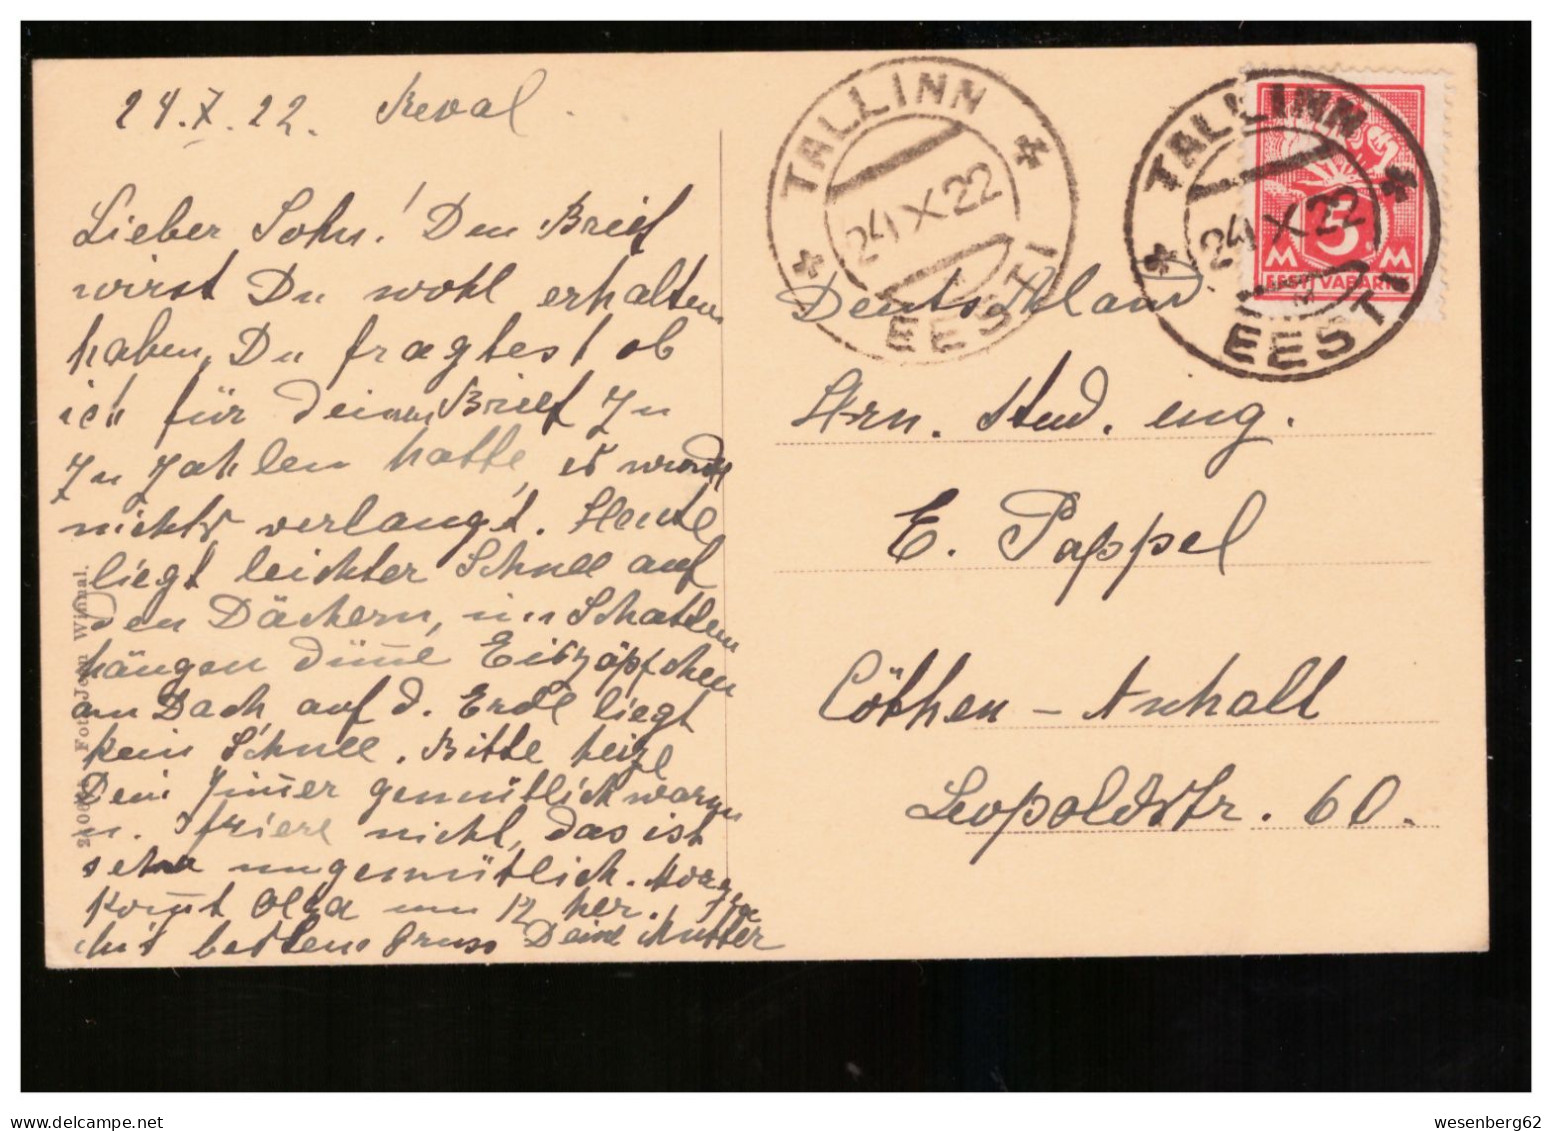 24.X.22. Reval.
Lieber Sohn! Den Brief
wirst Du wohl erhalten
haben, Du fragtest ob
ich für deinen Brief zu
zu zahlen hatte, es wurde
nichts verlangt. Heute
liegt leichter Schnee auf
den Dächern, im Schatten
hängen dünne Eiszäpfchen
am Dach, auf d. Erde liegt
kein Schnee. Bitte heize
Dein Zimer gemütlich warm
u. friere nicht, das ist
sehr ungemütlich. Morgen
komt Olga um 12 her.
Mit besten Gruss Deine Mutter
Foto Jean Wihmal.
TALLINN
24 X 22
EESTI
TALLINN
24 X 22
EESTI
5
M M
EESTI VABARIIK
Deutschland.
Hrn. Stud. eng.
E. Pappel
Cöthen - Anhalt
Leopoldstr. 60.
wesenberg62